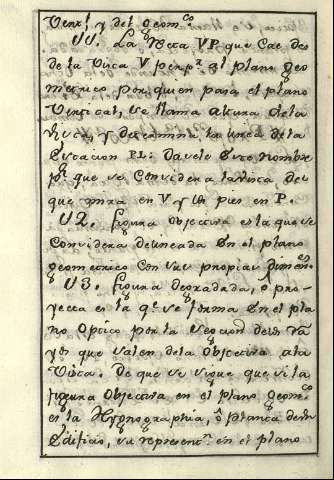 Vertˡ. y del geomᶜᵒ.
VV. La Recta VP que cae des
de la Vista V perpʳ. al plano geo
metrico por quien pasa el plano
Vertical, se llama altura dela
Vista, y determina la linea dela
Estacion PL: Davele este nombre
pʳ que se considera la Vista del
que mira en V y los pies en P.
V2. Figura objectiva es la que se
considera delineada en el plano
geometrico con sus propias dimenˢ.
V3. Figura degradada, ô pro-
yecta es la qᵉ. se forma en el pla
no optico por la seccion delos Ra
yos que salen dela objectiva ala
Vista. De que se sigue que si la
figura objectiva en el plano geomᶜᵒ.
es la Hygnographia, ô planta de un
Edificio, su representⁿ. en el plano